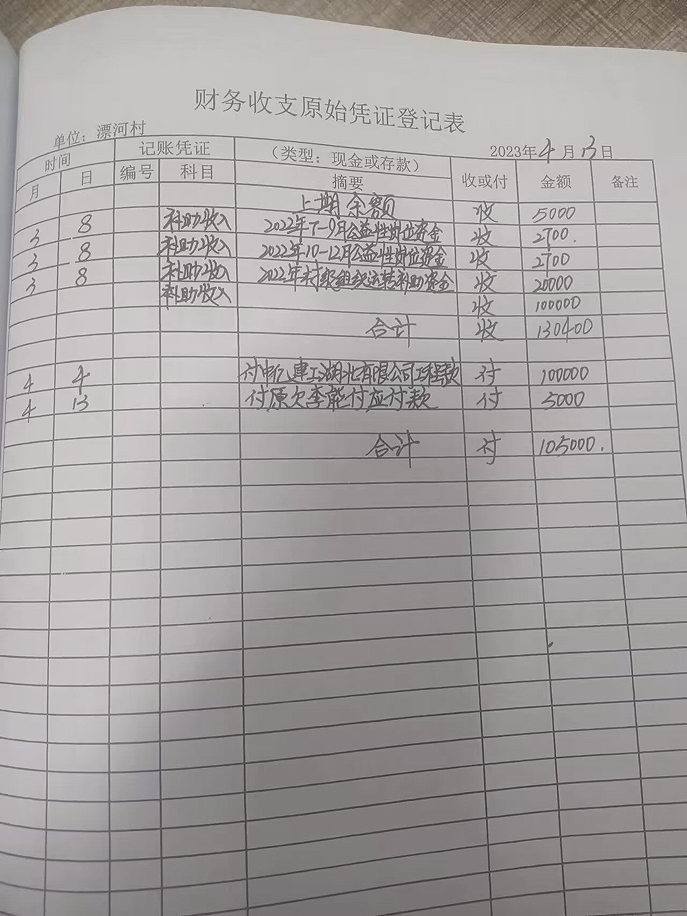 财务收支原始凭证登记表
单位：漂河村 2023年4月13日
时间 记账凭证 （类型：现金或存款） 收或付 金额 备注
月 日 编号 科目 摘要
上期余额 收 5000
3 8 补助收入 2022年7-9月公益性岗位资金 收 2700.
3 8 补助收入 2022年10-12月公益性岗位资金 收 2700
3 8 补助收入 2022年村级组织运转补助资金 收 20000
补助收入 收 100000
合计 收 130400
4 4 付申亿建工湖北有限公司工程款 付 100000
4 13 付原欠李能付应付款 付 5000
合计 付 105000.